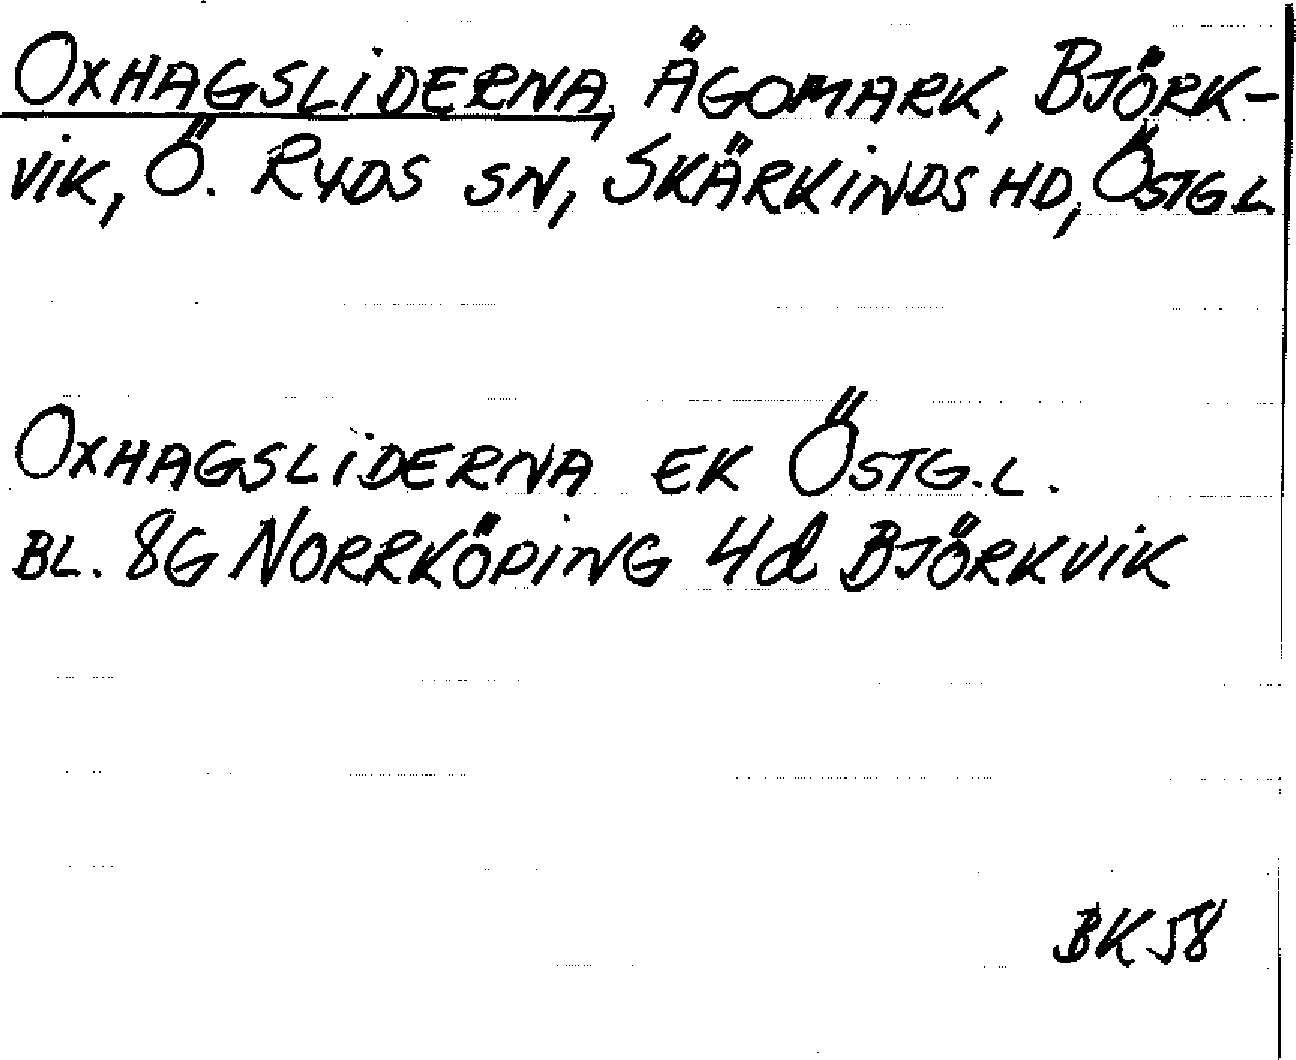 OXHAGSLIDERNA, ÄGOMARK, BJÖRK-
VIK, Ö. RYDS SN, SKÄRKINDS HD, ÖSTG.L
OXHAGSLIDERNA EK ÖSTG.L.
BL. 8G NORRKÖPING 4d BJÖRKVIK
BK 58